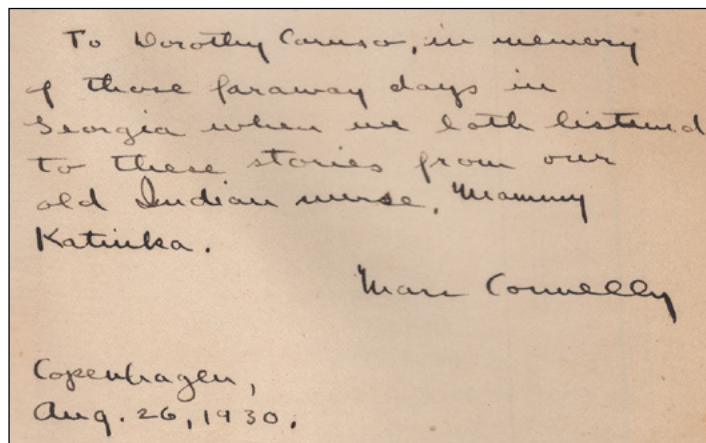 To Dorothy Caruso, in memory
of those faraway days in
Georgia when we both listened
to these stories from our
old Indian nurse, Mammy
Katinka.
Marc Connelly
Copenhagen,
Aug. 26, 1930.